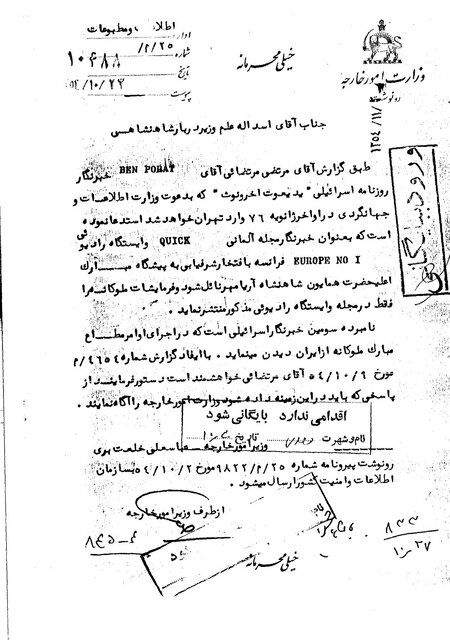 اداره اطلاعات و مطبوعات
شماره ۲۵/م/
۱۰۴۸۸
تاریخ ۵۴/۱۰/۲۳
پیوست
خیلی محرمانه
وزارت امور خارجه
رونوشت
۱۳۵۴/۱۱/
جناب آقای اسداله علم وزیر دربار شاهنشاهی
طبق گزارش آقای مرتضی مرتضائی آقای BEN PORAT خبرنگار
روزنامه اسرائیلی "یدیعوت اخرونوت" که بدعوت وزارت اطلاعات و
جهانگردی در اواخر ژانویه ۷۶ وارد تهران خواهد شد استدعا نموده
است که بعنوان خبرنگار مجله آلمانی QUICK وایستگاه رادیوئی
EUROPE NO I فرانسه با فتخار شرفیابی به پیشگاه مبارک
اعلیحضرت همایون شاهنشاه آریامهر نائل شود و فرمایشات ملوکانه را
فقط در مجله وایستگاه رادیوئی مذکور منتشر نماید.
نامبرده سومین خبرنگار اسرائیلی است که در اجرای اوامر مطاع
مبارک ملوکانه از ایران دیدن مینماید. با ایفاد گزارش شماره ۴۶۵۴/م
مورخ ۵۴/۱۰/۹ آقای مرتضائی خواهشمند است دستور فرمایند از
پاسخی که باید در این زمینه داده شود وزارت امور خارجه را آگاه نمایند.
اقدامی ندارد بایگانی شود
نام و شهرت
تاریخ
وزیر امور خارجه عباسعلی خلعت بری
رونوشت پیرونامه شماره ۹۸۲۲/م/۲۵ مورخ ۵۴/۱۰/۲ بسازمان
اطلاعات و امنیت کشور ارسال میشود.
از طرف وزیر امور خارجه
۸۳۳
۱۰/۲۷
خیلی محرمانه